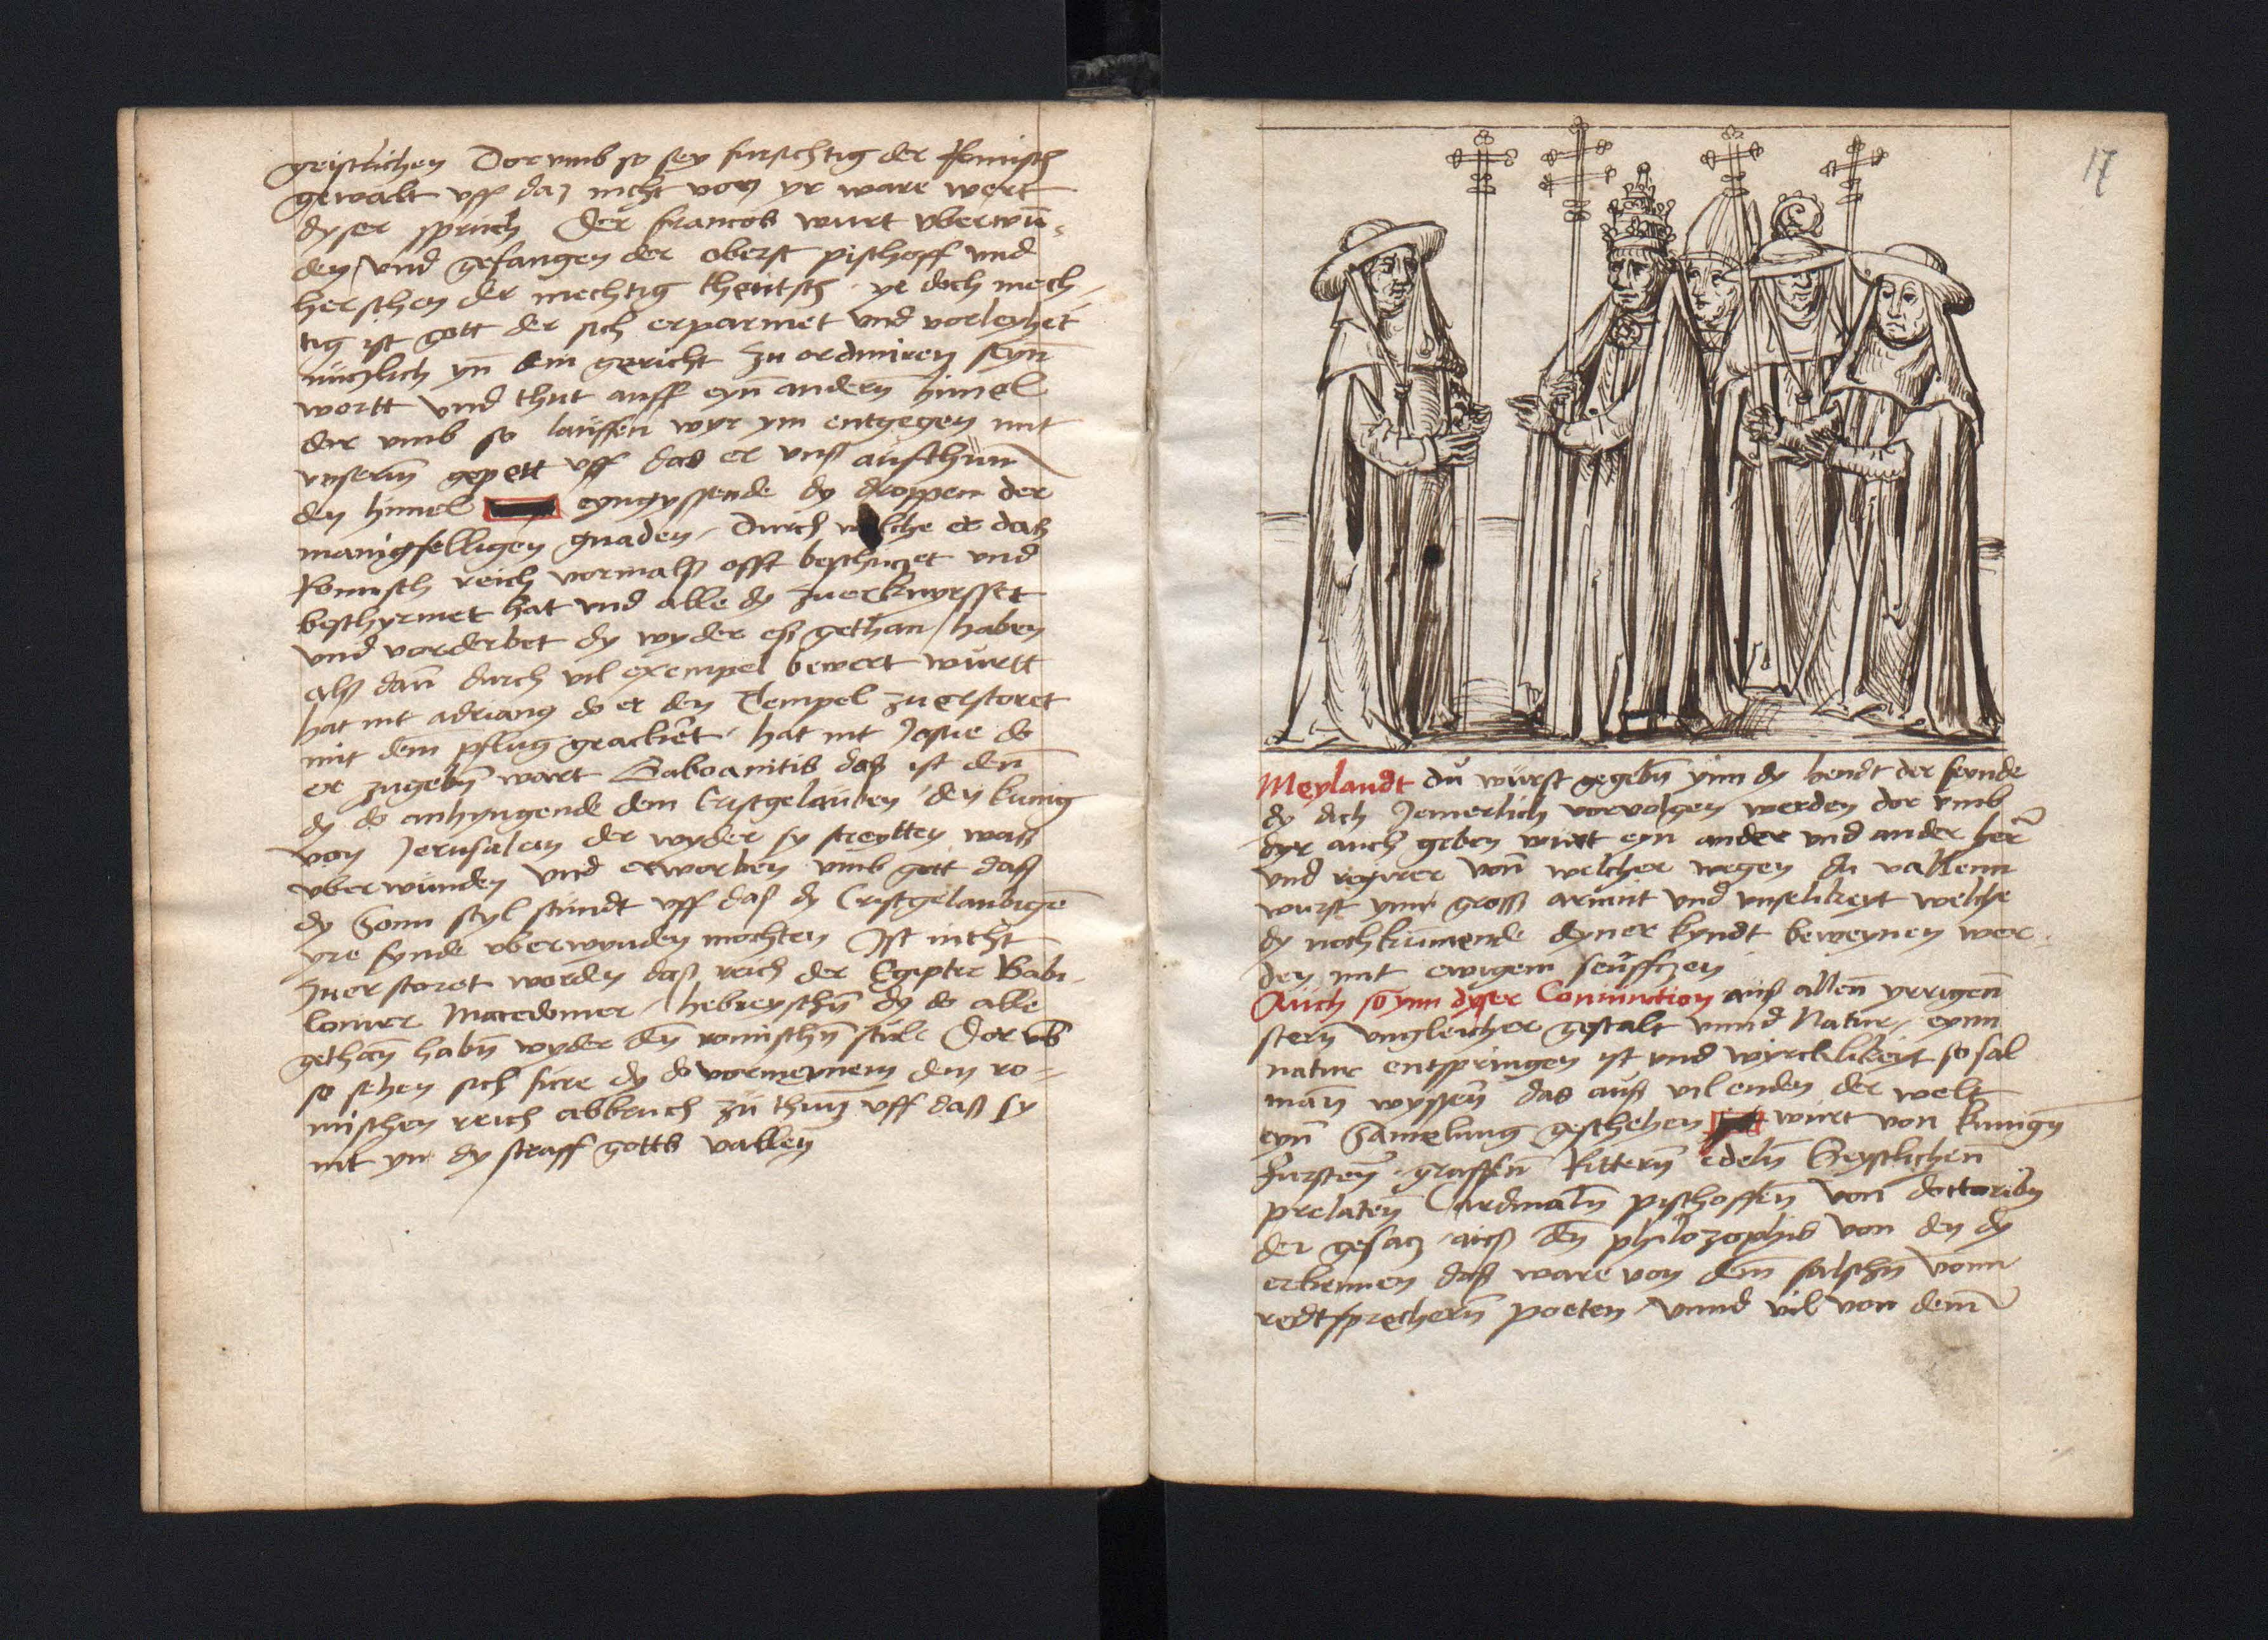 geistlichen Dorumb so sey fursichtig der Romisch
gewalt uff daz nicht von yr ware wert
dyser spruch Der francos wurt uberwu̅-
den / und gefangen der oberst pischoff und
herschen der mechtig theutsch ye doch mech-
tig ist gott der sich erparmet und vorleyhet
nuczlich yn̅ ein gericht zu ordiniren seyn̅
wortt und thut auff eyn̅ andern himel
dor umb so lauffen wyr ym entgegen mit
unserm̅ gepett uff das er unß aufthun̅
den himel eyngyssende dy droppem der
manigfelligen gnaden / Durch welche er daß
Romisch reich vormalß offt beschuczet und
beschyrmet hat und alle dy zuerknyrsset
und vorderbet dy wyder eß gethan haben
alß dan̅ durch vil exempel bewert wurtt
hat nit adrianus do er den Tempel zuerstoret
mit dem pflug geackert / hat nit Josue do
er zugebn̅ wart Gaboanitis daß ist den̅
dy do anhyngende dem Cristgelauben den kunig
von Jerusalem der wyder sy streytten waß
uberwunden und erworben umb gott daß
dy Sonn styl stundt uff daß dy Cristgelaubige̅
yre fynde uberwynden mochten Ist nicht
zuerstoret worden daß reich der Egipter Babi-
lonier Macedonier / hebreyschn̅ dy do alle
gethan̅ habn̅ wyder den̅ romischn̅ stule Dor ub
so sehen sich fure dy do vormeynem dem ro-
mischen reich abbruch zu thun̅ uff daß sy
nit yn dy straff gotts vallen̅
17
Meylandt du wurst gegebn̅ ynn dy hendt der feynde
dy dich Jemerlich vorvolgen werden dor umb
dyr auch geben wurt eyn ander und ander her̅
und regirer von̅ welcher wegen du vallenn
wurst ynn gross armut und unselikeyt welche
dy nochkumende dyner kyndt beweynen wer-
den mit ewigem seuffczen
Auch so ynn dyser Coniunction auß allen̅ yrrigen̅
stern̅ ungleicher gestalt unnd Natur / eynn
natur entspringen ist und wircklikeyt so sal
man̅ wyssen̅ das auß vil enden der welt
eyn̅ Samelung geschehen wirt von kunign
Fursten̅ graffen̅ Rittern̅ edeln̅ Geystlichen̅
prelaten̅ Cardinaln̅ pischoffen̅ von doctoribn
der gesacz auß den̅ philozophis von den dy
erkennen daß ware von dem̅ falschn̅ vonn
redtsprechern̅ poeten / unnd vil von dem̅